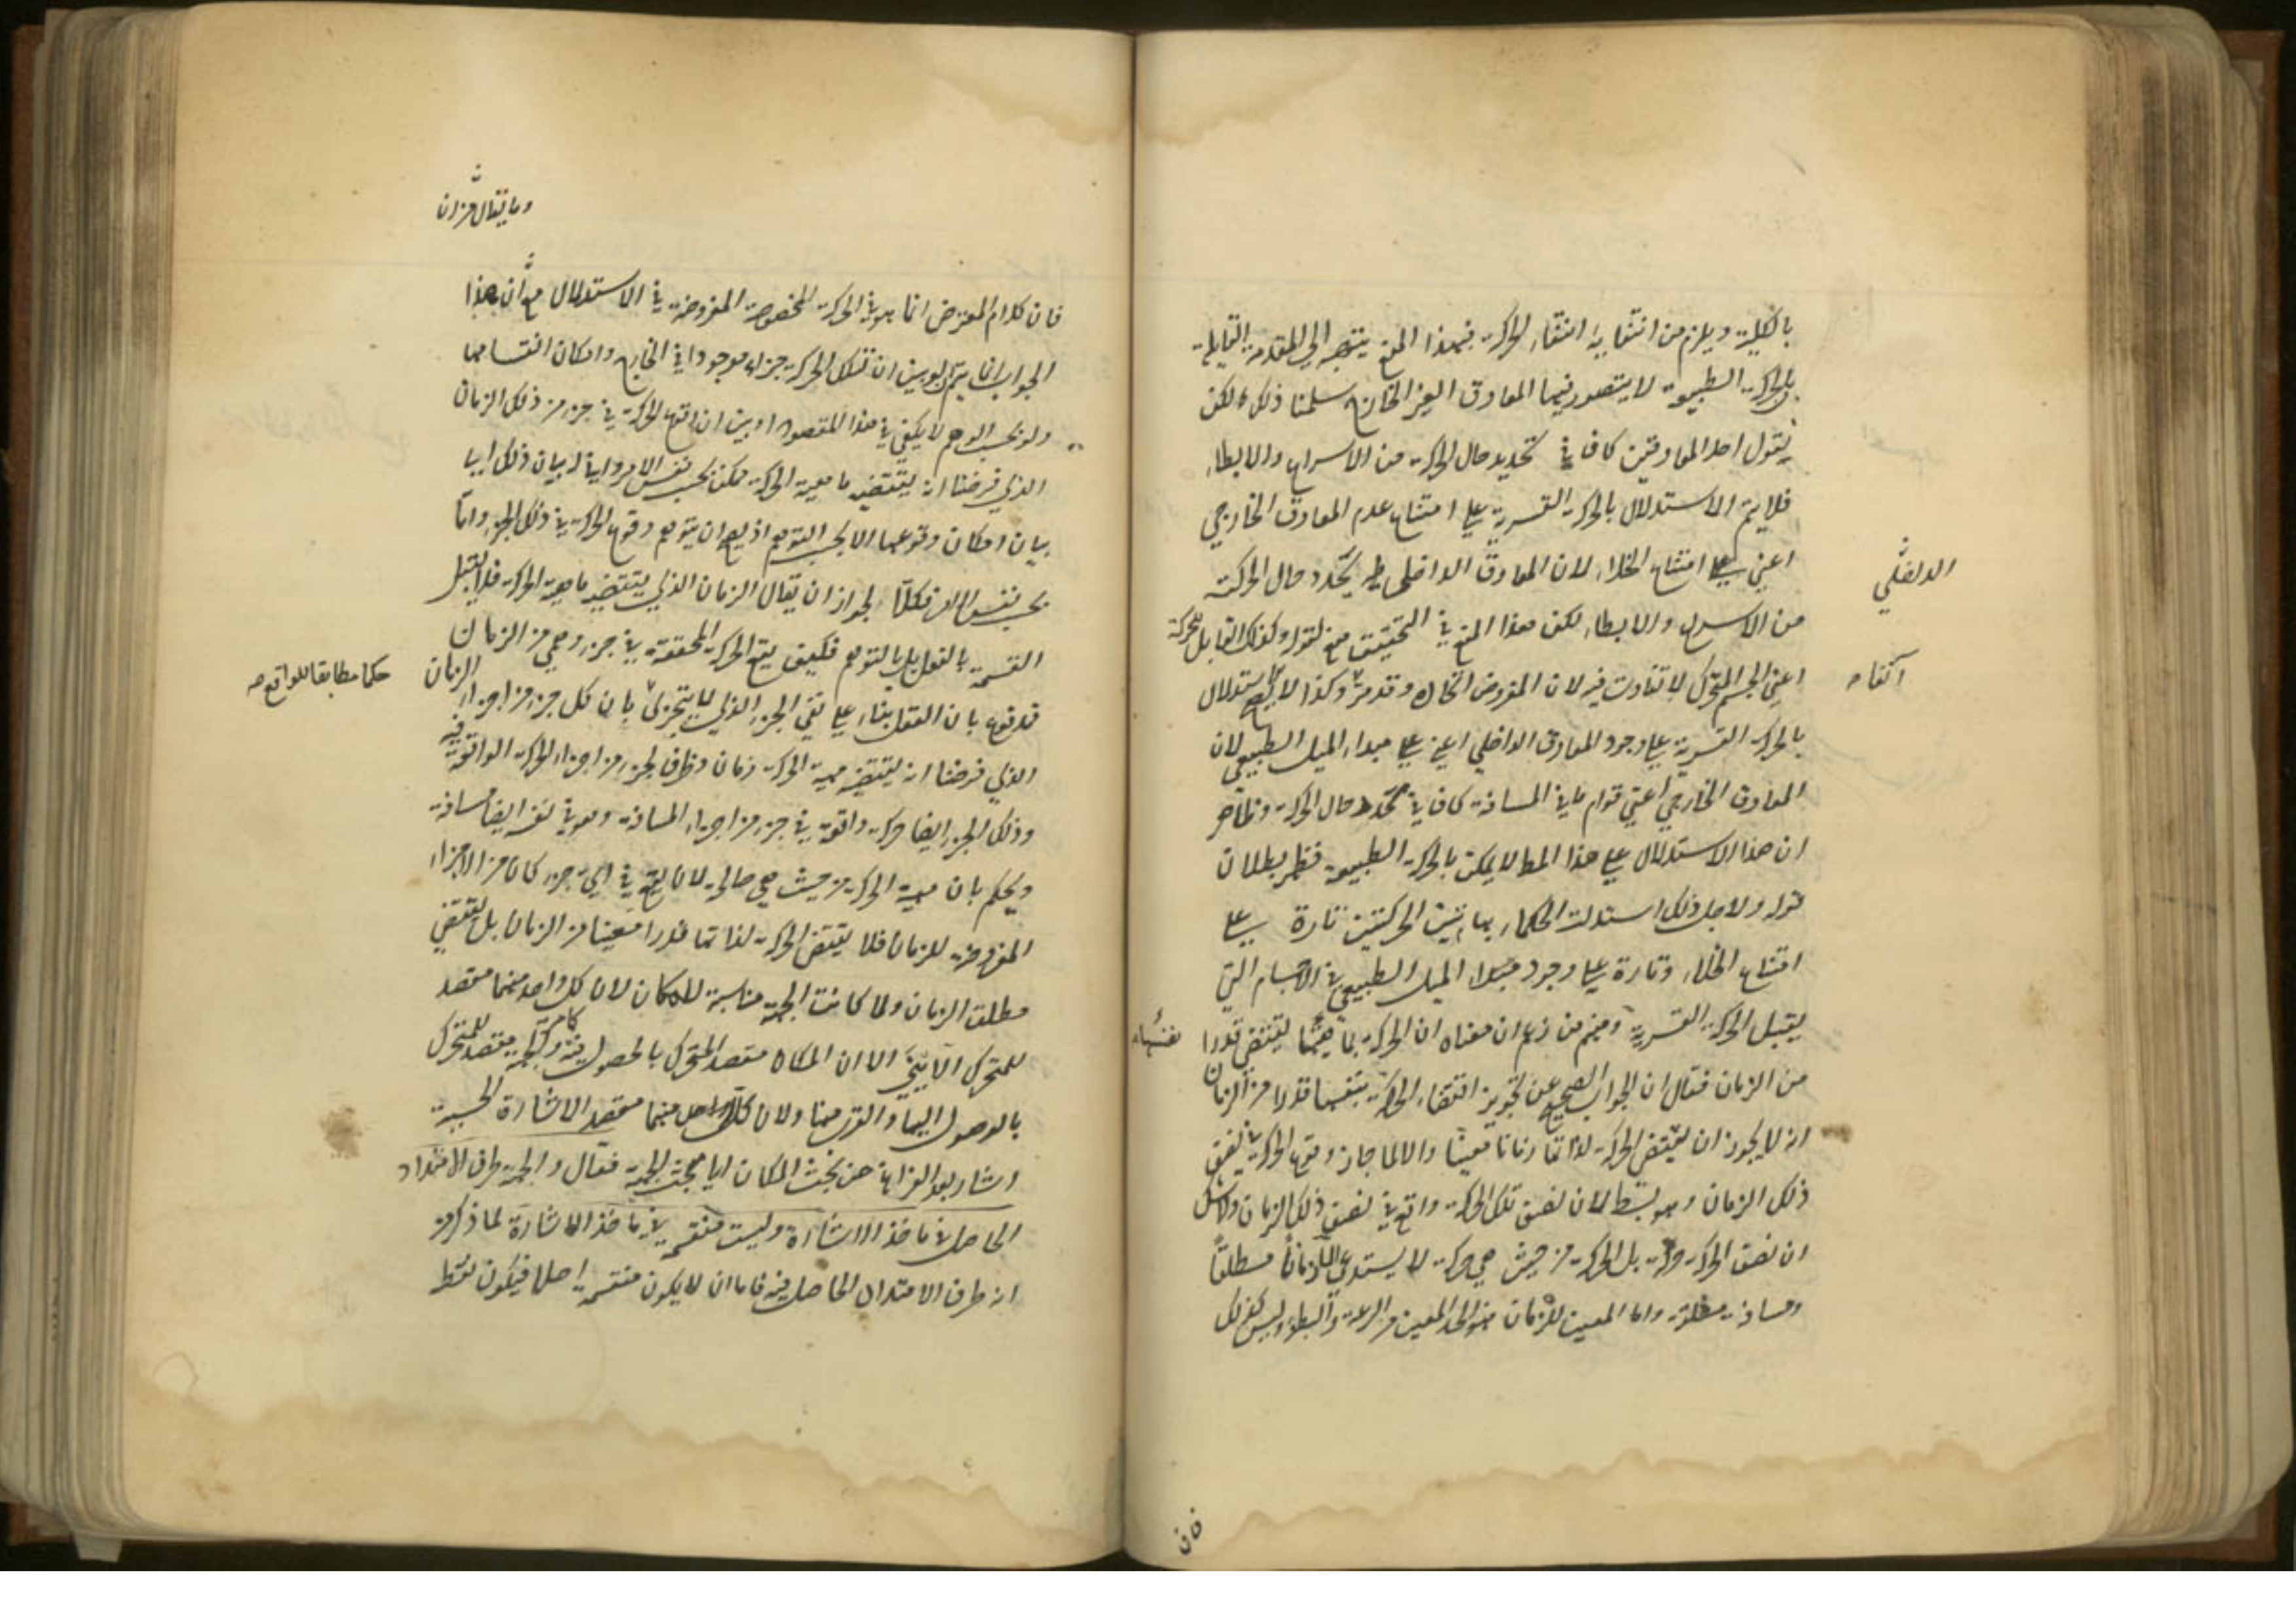 بالكلية ويلزم من انتفايه انتفاء الحركة فهذا المنع يتوجه الى المقدمة القايلة
بان الحركة الطبيعية لا يتصور فيها المعاوق الغير الخارج سلمنا ذلك لكن
نقول احد المعاوقين كاف في تحديد حال الحركة من الاسراع والابطاء
فلا يتم الاستدلال بالحركة القسرية على امتناع عدم المعاوق الخارجي
اعني على امتناع الخلاء لان المعاوق الداخلي يحدد حال الحركة
من الاسراع والابطاء لكن هذا المنع في التحقيق منع لقوله وكذلك القابل للحركة
اعني الجسم المتحرك لا تفاوت فيه لان المفروض اتحاده وقد مر وكذا لا يصح الاستدلال
آنفا
بالحركة القسرية على وجود المعاوق الداخلي اعني على مبداء الميل الطبيعي لان
المعاوق الخارجي اعني قوام ما في المسافة كاف في تحدد حال الحركة وظاهر
ان هذا الاستدلال على هذا المط لا يمكن بالحركة الطبيعية فظهر بطلان
قوله ولاجل ذلك استدلت الحكماء بهاتين الحركتين تارة على
امتناع الخلاء وتارة على وجود مبداء الميل الطبيعي في الاجسام التي
يقبل الحركة القسرية ومنهم من زعم ان معناه ان الحركة بماهيتها يقتضي قدرا
من الزمان فقال ان الجواب الصحيح عن تجويز اقتضاء الحركة بنفسها قدرا من الزمان
انه لا يجوز ان يقتضي الحركة لذاتها زمانا معينا والا لما جاز وقوع الحركة في نصف
ذلك الزمان وهو بط لان نصف تلك الحركة واقع في نصف ذلك الزمان ولا شك
ان نصف الحركة حركة بل الحركة من حيث هي حركة لا يستدعي الا زمانا مطلقا
ومسافة مطلقة واما المعين للزمان فهو الحد المعين من السرعة والبطؤ وليس كذلك
فان
وما يقال من ان
فان كلام المعترض انما هو في الحركة المخصوصة المفروضة في الاستدلال مع ان هذا
الجواب انما يتم لو بين ان لتلك الحركة جزء موجودا في الخارج وامكان انقسامها
ولو بحسب الوهم لا يكفي في هذا المقصود او بين ان وقوع الحركة في جزء من ذلك الزمان
الذي فرضنا انه يقتضيه ماهية الحركة ممكن بحسب نفس الامر واني له بيان ذلك
بيان امكان وقوعها الا بحسب التوهم اذ يصح ان يتوهم وقوع الحركة في ذلك الجزء واما
بحسب نفس الامر فكلا لجواز ان يقال الزمان الذي يقتضيه ماهية الحركة فلا يقبل
القسمة بالفعل بل بالتوهم فكيف يقع الحركة المحققة في جزء وهمي من الزمان
فمدفوع بان العقل بناء على نفي الجزء الذي لا يتجزى بان كل جزء من اجزاء الزمان
حكما مطابقا للواقع صح
الذي فرضنا انه يقتضيه مهية الحركة زمان وظرف لجزء من اجزاء الحركة الواقعة فيه
وذلك الجزء ايضا حركة واقعة في جزء من اجزاء المسافة وهو في نفسه ايضا مسافة
ويحكم بان مهية الحركة من حيث هي صالحة لان تقع في اي جزء كان من الاجزاء
المفروضة للزمان فلا يقتضي الحركة لذاتها قدرا معينا من الزمان بل يقتضي
مطلق الزمان ولما كانت الجهة مناسبة للمكان لان كل واحد منهما مقصد
للمتحرك الايني الا ان المكان مقصد المتحرك بالحصول فيه والجهة مقصد للمتحرك
بالوصول اليها والقرب منها ولان كل واحد منهما مقصد الاشارة الحسية
اشار بعد الفراغ عن بحث المكان الى بحث الجهة فقال والجهة طرف الامتداد
الحاصل في ماخذ الاشارة وليست منقسمة في ماخذ الاشارة لما ذكر من
انه طرف الامتداد الحاصل فيه فاما ان لا يكون منقسمة اصلا فيكون نقطة